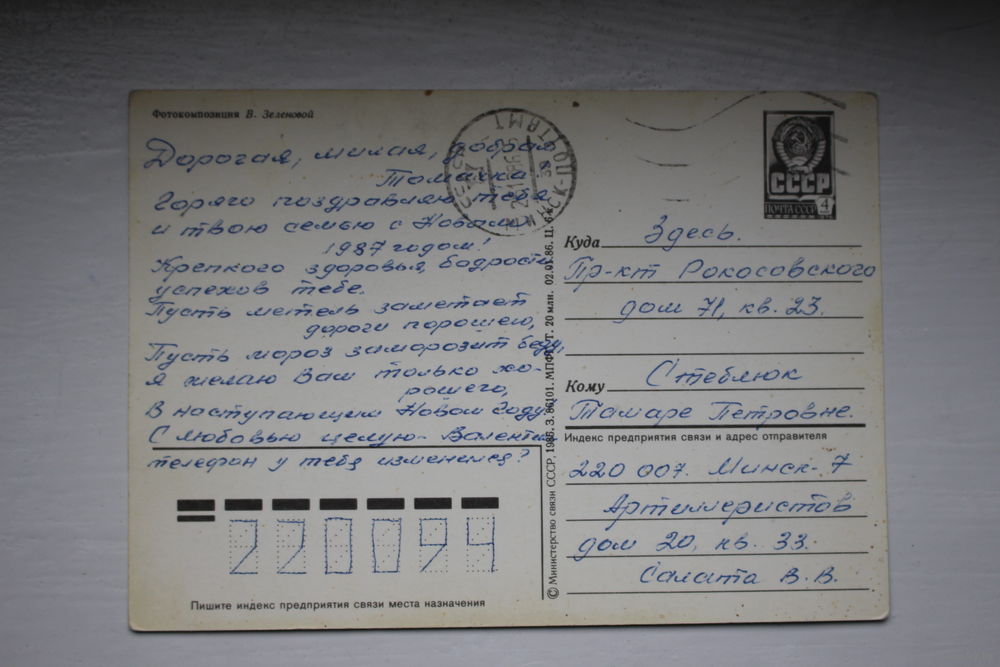 Фотокомпозиция В. Зеленовой
Дорогая, милая, добрая
Томочка
Горячо поздравляю тебя
и твою семью с Новым
1987 годом!
Крепкого здоровья, бодрости
успехов тебе.
Пусть метель заметает
дороги порошею,
Пусть мороз заморозит беду,
я желаю Вам только хо-
рошего,
В наступающем Новом Году.
С любовью целую- Валенти
телефон у тебя изменился?
220094
Пишите индекс предприятия связи места назначения
© Министерство связи СССР, 1986. З. 86101. МПФГ. Т. 20 млн. 02.01.86. Ц. 6 к.
СССР
ПОЧТА СССР 4
Куда Здесь.
Пр-кт Рокосовского
дом 71, кв. 23.
Кому Стеблюк
Тамаре Петровне.
Индекс предприятия связи и адрес отправителя
220 007. Минск-7
Артиллеристов
дом 20, кв. 33.
Салата В. В.